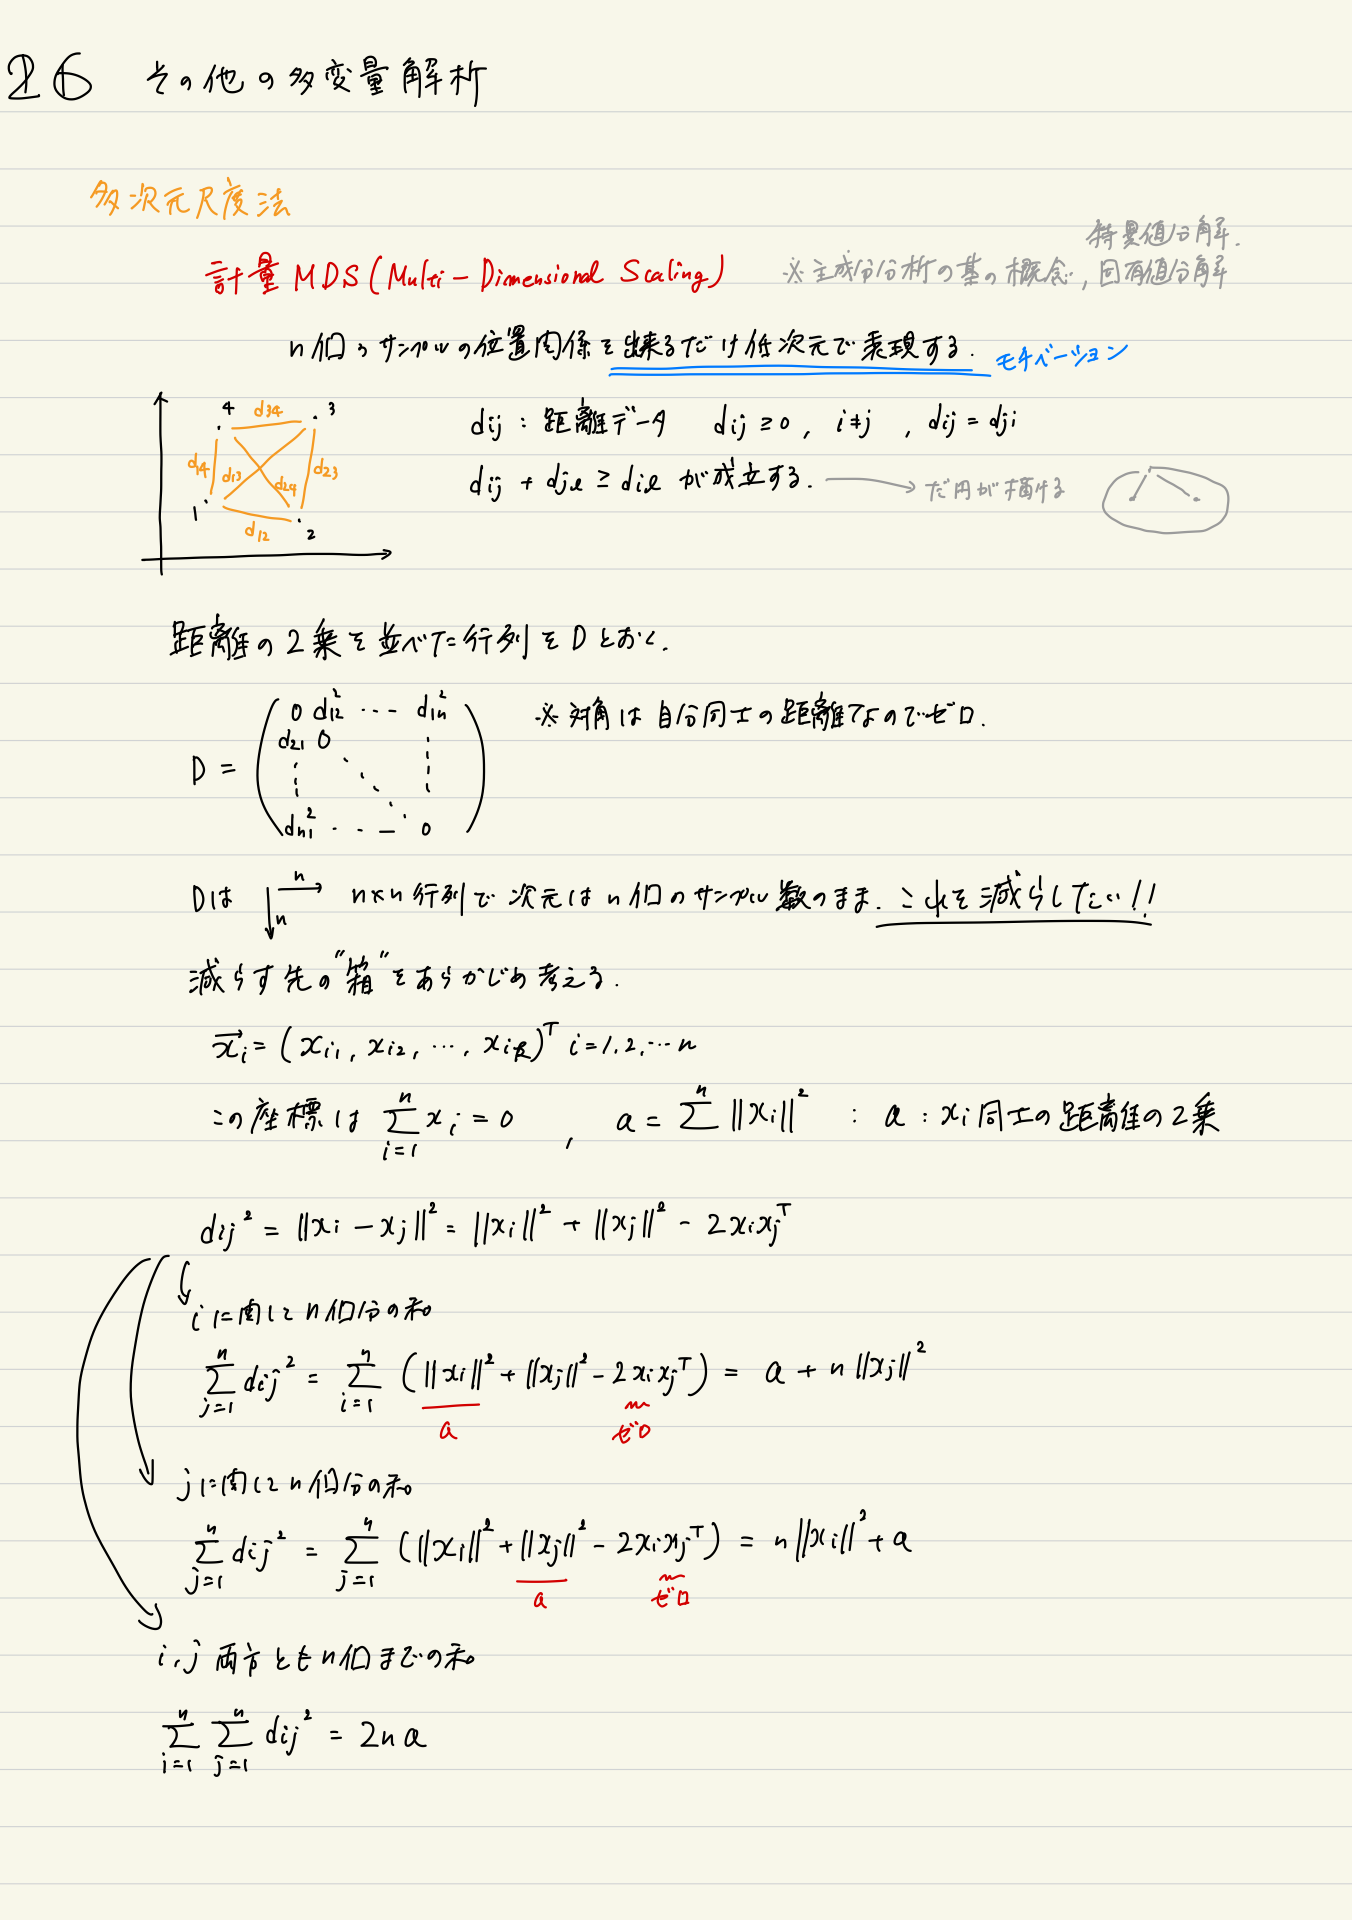 26 その他の多変量解析
多次元尺度法
特異値分解.
計量 MDS (Multi-Dimensional Scaling) ※主成分分析の基の概念, 固有値分解
n個のサンプルの位置関係を出来るだけ低次元で表現する. モチベーション
4 d34 3
d14 d13 d24 d23
1 d12 2
dij : 距離データ dij ≥ 0, i≠j , dij = dji
dij + djl ≥ dil が成立する. → だ円が描ける
距離の2乗を並べた行列をDとおく.
D = ( 0 d12² ⋯ d1n² ※対角は自分同士の距離なのでゼロ.
d21 0 ⋮
⋮ ⋱ ⋮
dn1² ⋯ 0 )
Dは n n n×n行列で次元はn個のサンプル数のまま. これを減らしたい!!
減らす先の"箱"をあらかじめ考える.
x⃗i = (xi1, xi2, ⋯, xik)ᵀ i=1,2,⋯n
この座標は Σ_{i=1}^{n} xi = 0 , a = Σ^{n} ||xi||² : a : xi同士の距離の2乗
dij² = ||xi − xj||² = ||xi||² + ||xj||² − 2xixjᵀ
iに関してn個分の和
Σ_{j=1}^{n} dij² = Σ_{i=1}^{n} (||xi||² + ||xj||² − 2xixjᵀ) = a + n||xj||²
a ゼロ
jに関してn個分の和
Σ_{j=1}^{n} dij² = Σ_{j=1}^{n} (||xi||² + ||xj||² − 2xixjᵀ) = n||xi||² + a
a ゼロ
i,j 両方ともn個までの和
Σ_{i=1}^{n} Σ_{j=1}^{n} dij² = 2na